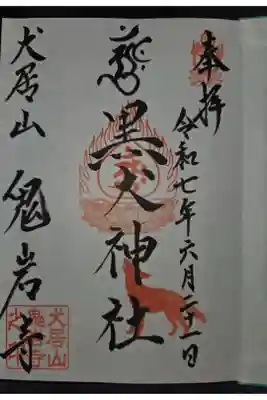 奉拝
令和七年六月二十一日
黒犬神社
犬居山 鬼岩寺
犬居山
鬼岩寺
之印